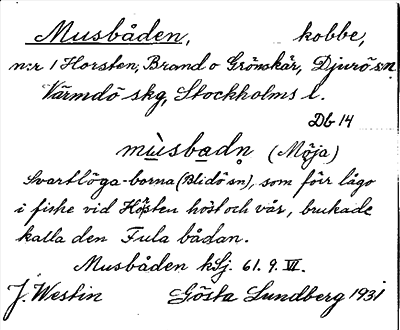 Musbåden, kobbe,
n:r 1 Horsten, Brand o Grönskär, Djurö sn.
Värmdö skg, Stockholms l.
Db 14
mùsbadn (Möja)
Svartlöga-borna (Blidö sn), som förr lågo
i fiske vid Hösten höst och vår, brukade
kalla den Fula bådan.
Musbåden kSj. 61. 9. VI.
J. Westin Gösta Lundberg 1931